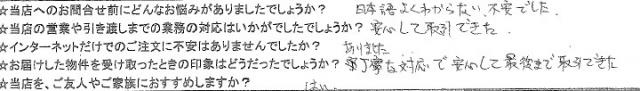 ☆当店へのお問合せ前にどんなお悩みがありましたでしょうか? 日本語よくわからない、不安でした。
☆当店の営業や引き渡しまでの業務の対応はいかがでしたでしょうか? 安心して取引できた。
☆インターネットだけでのご注文に不安はありませんでしたか? ありました
☆お届けした物件を受け取ったときの印象はどうだったでしょうか? 丁寧な対応で安心して最後まで取引できた
☆当店を、ご友人やご家族におすすめしますか? はい